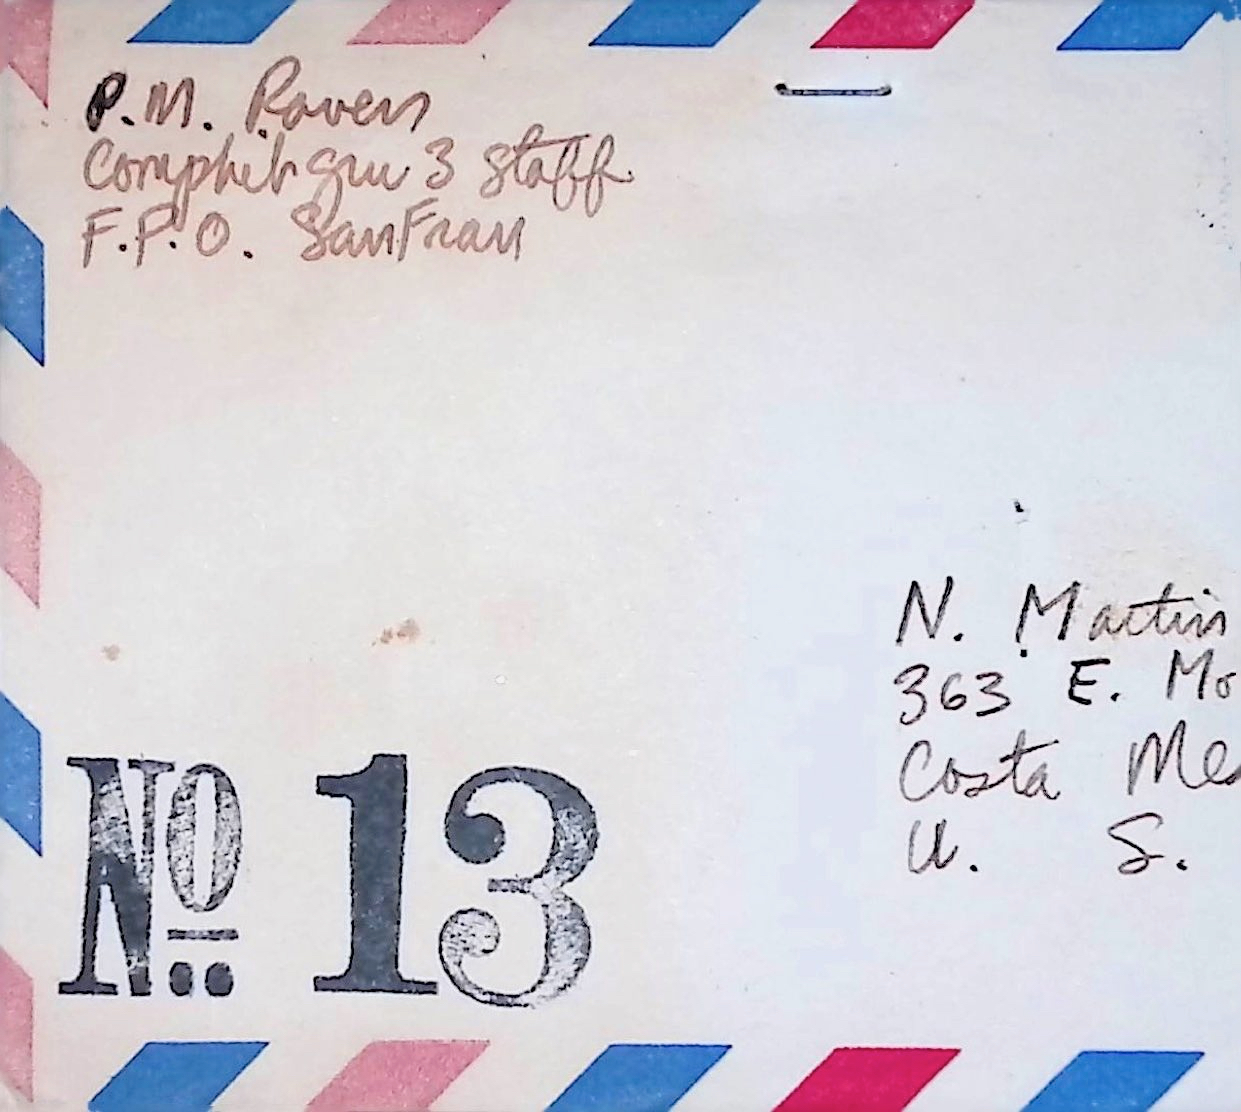 P.M. Raven
Comphib gru 3 staff
F.P.O. San Fran
N. Martin
363 E. Mo
Costa Me
U. S.
No 13